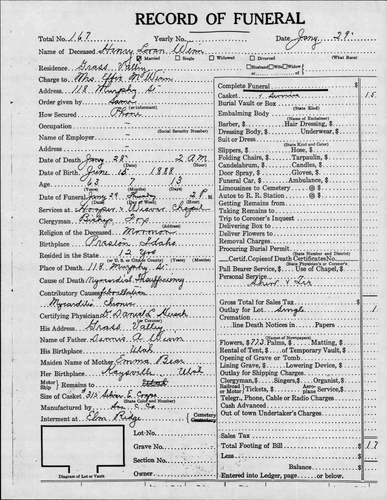 RECORD OF FUNERAL
Total No. 167 Yearly No. Date Jany 29
Name of Deceased Henry Loran Winn
Married Single Widowed Divorced (What Race)
Residence Grass Valley Husband Wife Widow of
Charge to Mrs. Effie M Winn
Address 118 Murphy St
Order given by Same
(or informant)
How Secured Phone
Occupation
(Social Security Number)
Name of Employer
Address
Date of Death Jany 28 2 AM
Date of Birth June 15 1888
Age 63 7 13
Date of Funeral Jany 29 2 P M
Services at Hooper & Weaver Chapel
Clergyman Bishop Fox
Religion of the Deceased Mormon
Birthplace Preston, Idaho
Resided in the State 13 yrs
Place of Death 118 Murphy St.
Cause of Death Myocardial Insufficiency
Contributory Causes Fibrillation
Myocarditis Chronic
Certifying Physician Dr Daniel
His Address Grass Valley
Name of Father Dennis A Winn
His Birthplace Utah
Maiden Name of Mother Emma Bear
Her Birthplace Kaysville Utah
Motor Ship Remains to
Size of Casket
(State Color and Number)
Manufactured by
Interment at Elm Ridge Cemetery
Lot No.
Grave No.
Section No.
Owner
Diagram of Lot or Vault
Complete Funeral $
Casket & Service 15
Burial Vault or Box
(State Kind)
Embalming Body
Barber, $ Hair Dressing, $
Dressing Body, $ Underwear, $
Suit or Dress
(State Kind and Color)
Slippers, $ Hose, $
Folding Chairs, $ Tarpaulin, $
Candelabrum, $ Candles, $
Door Spray, $ Gloves, $
Funeral Car, $ Ambulance, $
Limousines to Cemetery @ $
Autos to R. R. Station @ $
Getting Remains from
Taking Remains to
Trip to Coroner's Inquest
Delivering Box to
Deliver Flowers to
Removal Charges
Procuring Burial Permit
(State Number and District)
Certif. Copies of Death Certificates No.
(State Physician's or Coroner's)
Pall Bearer Service, $ Use of Chapel, $
Personal Service
Gross Total for Sales Tax
Outlay for Lot Single
Cremation
line Death Notices in Papers
(Names of Newspapers)
Flowers, $ Palms, $ Matting, $
Rental of Tent, $ of Temporary Vault, $
Opening of Grave or Tomb
Lining Grave, $ Lowering Device, $
Outlay for Shipping Charges
Clergyman, $ Singers, $ Organist, $
Telegr., Phone, Cable or Radio Charges
Cash Advanced
Out of town Undertaker's Charges
Sales Tax
Total Footing of Bill 17
Less
Balance
Entered into Ledger, page or below.